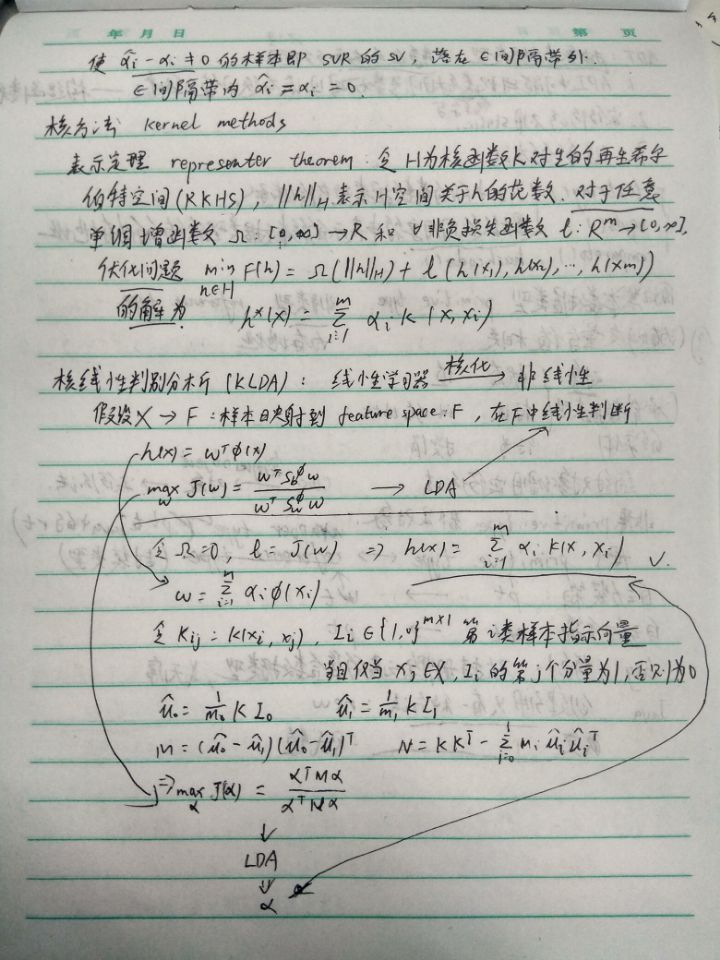 年 月 日 第 页
使 α̂i - αi ≠ 0 的样本即 SVR 的 SV, 落在 ∈间隔带外.
∈间隔带内 α̂i = αi = 0.
核方法 kernel methods
表示定理 representer theorem: 令 H为核函数K对生的再生希尔
伯特空间(RKHS), ||h||H 表示H空间关于h的范数. 对于任意
单调增函数 Ω: [0,∞] → R 和 ∀非负损失函数 ℓ: R^m → [0,∞],
优化问题 min h∈H F(h) = Ω(||h||H) + ℓ(h(x1), h(x2), ..., h(xm))
的解为 h*(x) = Σ_{i=1}^{m} αi k(x, xi)
核线性判别分析(KLDA): 线性学习器 核化→ 非线性
假设 X → F: 样本映射到 feature space: F, 在F中线性判断
h(x) = w^T φ(x)
max w J(w) = w^T Sb^φ w / w^T Sw^φ w → LDA
令 Ω=0, ℓ = J(w) ⇒ h(x) = Σ_{i=1}^{m} αi k(x, xi) √.
w = Σ_{i=1}^{m} αi φ(xi)
令 Kij = k(xi, xj), Ii ∈ {1,0}^{m×1} 第i类样本指示向量
当且仅当 xj ∈ X, Ii 的第j个分量为1, 否则为0
û0 = 1/m0 K I0 û1 = 1/m1 K I1
M = (û0 - û1)(û0 - û1)^T N = KK^T - Σ_{i=0}^{1} mi ûi ûi^T
⇒ max α J(α) = α^T M α / α^T N α
↓
LDA
⇓
α